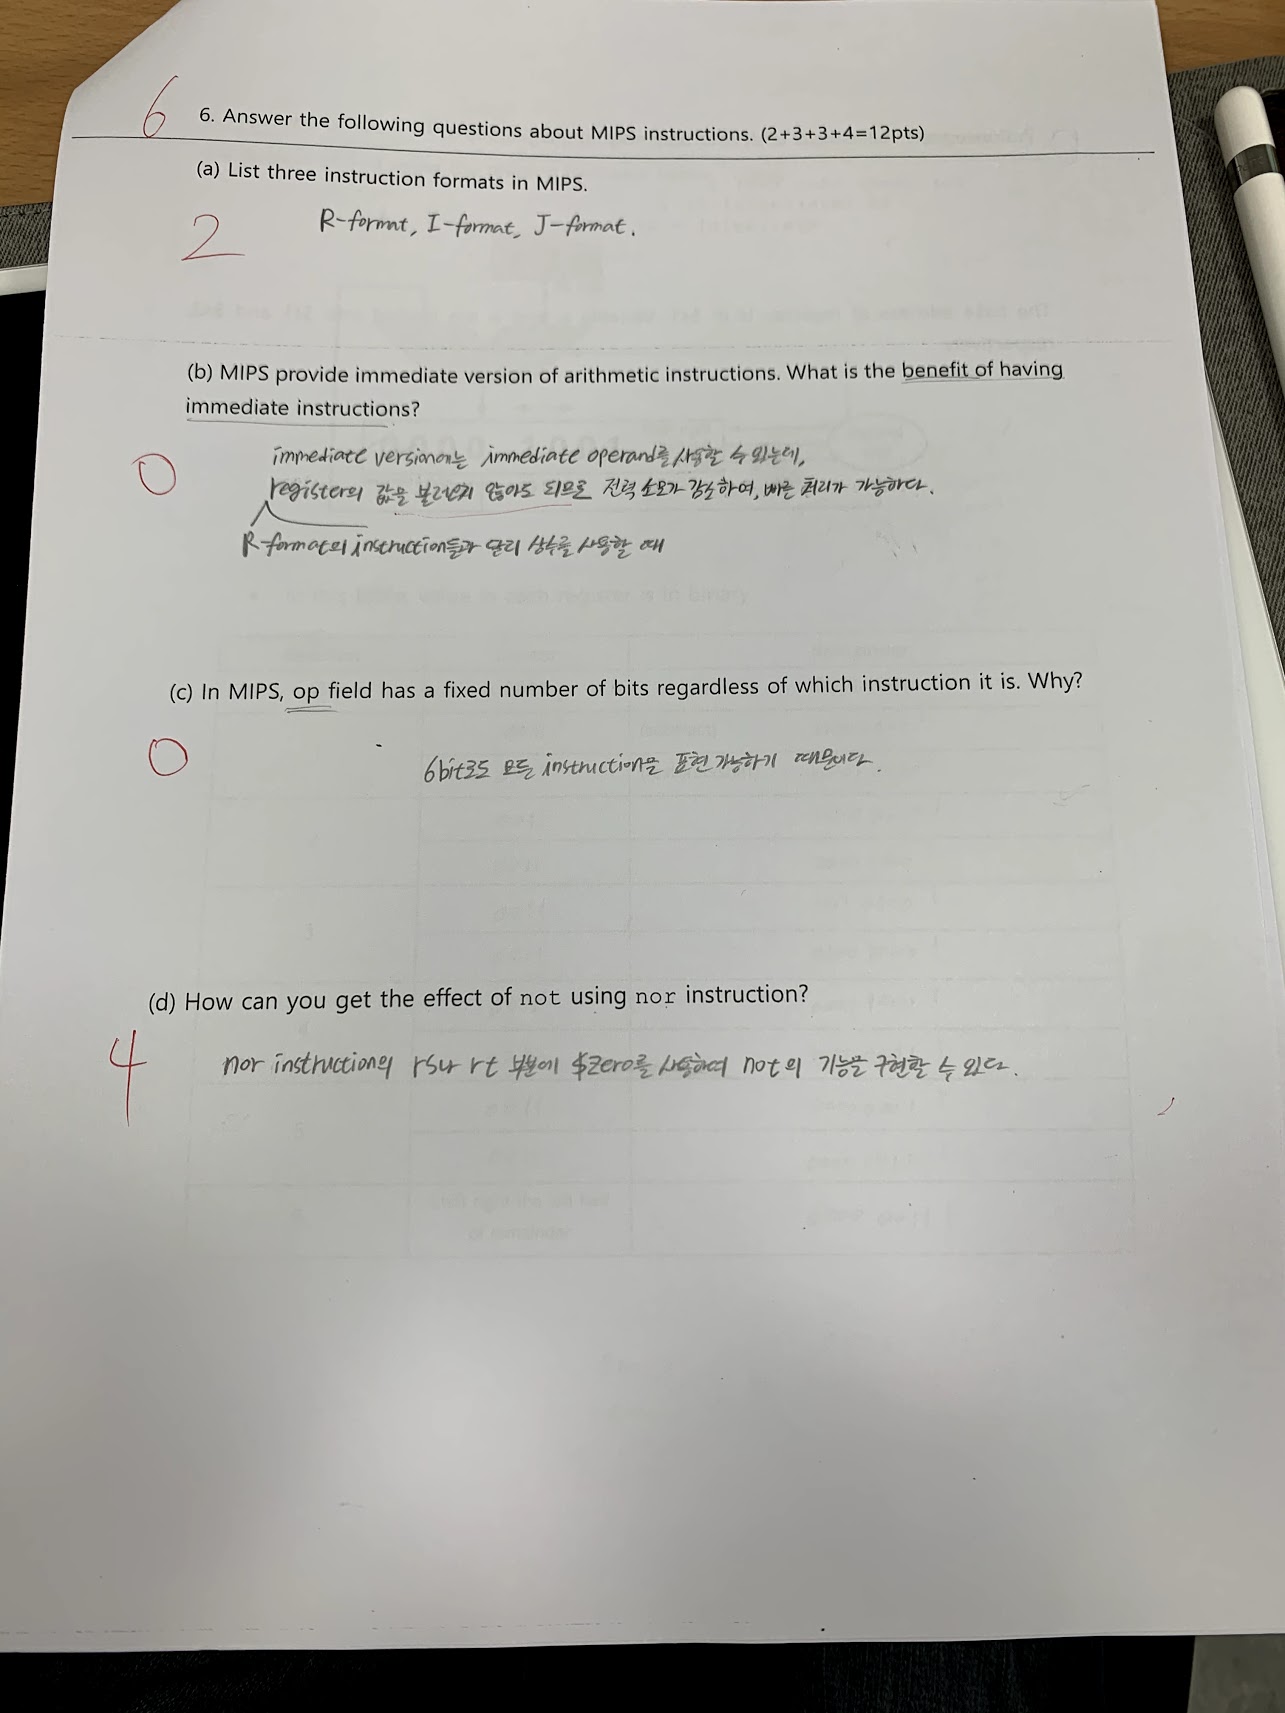 6
6. Answer the following questions about MIPS instructions. (2+3+3+4=12pts)
(a) List three instruction formats in MIPS.
2
R-format, I-format, J-format.
(b) MIPS provide immediate version of arithmetic instructions. What is the benefit of having
immediate instructions?
0
immediate version에는 immediate operand를 사용할 수 있는데,
register의 값을 불러오지 않아도 되므로 전력 소모가 감소하여, 빠른 처리가 가능하다.
R-format의 instruction들과 달리 상수를 사용할 때
(c) In MIPS, op field has a fixed number of bits regardless of which instruction it is. Why?
0
6bit로도 모든 instruction을 표현 가능하기 때문이다.
(d) How can you get the effect of not using nor instruction?
4
nor instruction의 rs나 rt 부분에 $zero를 사용하여 not의 기능을 구현할 수 있다.